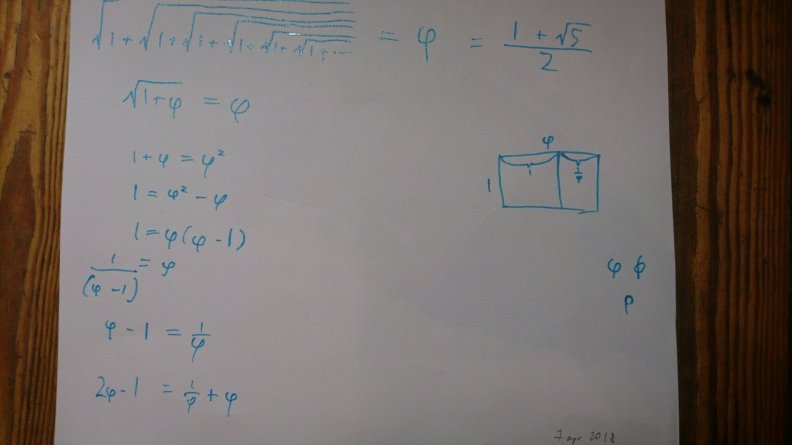 √1+√1+√1+√1+√1+√1+... = φ = (1 + √5)/2
√1+φ = φ
1 + φ = φ²
1 = φ² - φ
1 = φ(φ - 1)
1/(φ - 1) = φ
φ - 1 = 1/φ
2φ - 1 = 1/φ + φ
φ
1 1/φ
1
φ ϕ
ρ
7 apr 2018